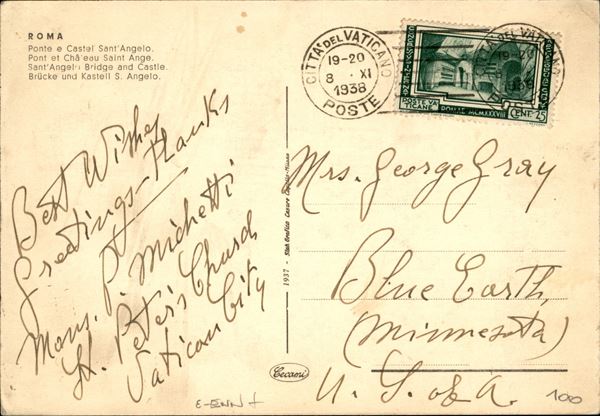 ROMA
Ponte e Castel Sant'Angelo.
Pont et Châ'eau Saint Ange.
Sant'Angelo Bridge and Castle.
Brücke und Kastell S. Angelo.
Best Wishes
Greetings - Thanks
Mons. P. Michetti
St. Peter's Church
Vatican City
1937 - Stab. Grafico Cesare Capello - Milano
Cecami
CITTA' DEL VATICANO
19-20
8 · XI
1938
POSTE
POSTE VATICANE
ROMAE MCMXXXVIII
CENT. 25
Mrs. George Gray
Blue Earth,
(Minnesota)
U. S. of A.
100